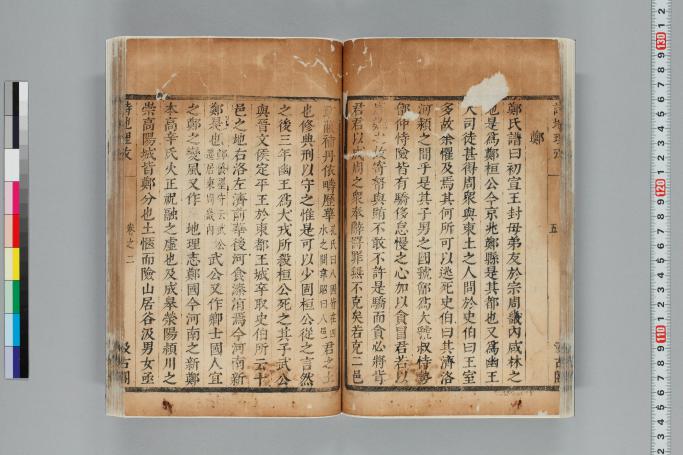 詩地理攷
五
汲古閣
鄭
鄭氏譜曰初宣王封母弟友於宗周畿內咸林之
地是爲鄭桓公今京兆鄭縣是其都也又爲幽王
大司徒甚得周衆與東土之人問於史伯曰王室
多故余懼及焉其何所可以逃死史伯曰其濟洛
河潁之間乎是其子男之國虢鄶爲大虢叔恃勢
鄶仲恃險皆有驕侈怠慢之心加以貪冒君若以
故寄帑與賄不敢不許是驕而貪必將背
君君以成周之衆奉辭罰罪無不克矣若克二邑
鄢蔽補丹依疇歷華君之土
也修典刑以守之惟是可以少固桓公從之言然
之後三年幽王爲犬戎所殺桓公死之其子武公
與晉文侯定平王於東都王城卒取史伯所云十
邑之地右洛左濟前華後河食溱洧焉今河南新
鄭是也武公又作卿士國人宜
之鄭之變風又作 地理志鄭國今河南之新鄭
本高辛氏火正祝融之虛也及成皋滎陽潁川之
崇高陽城皆鄭分也土陿而險山居谷汲男女亟
詩地理攷
卷之二
汲古閣
130
120
110